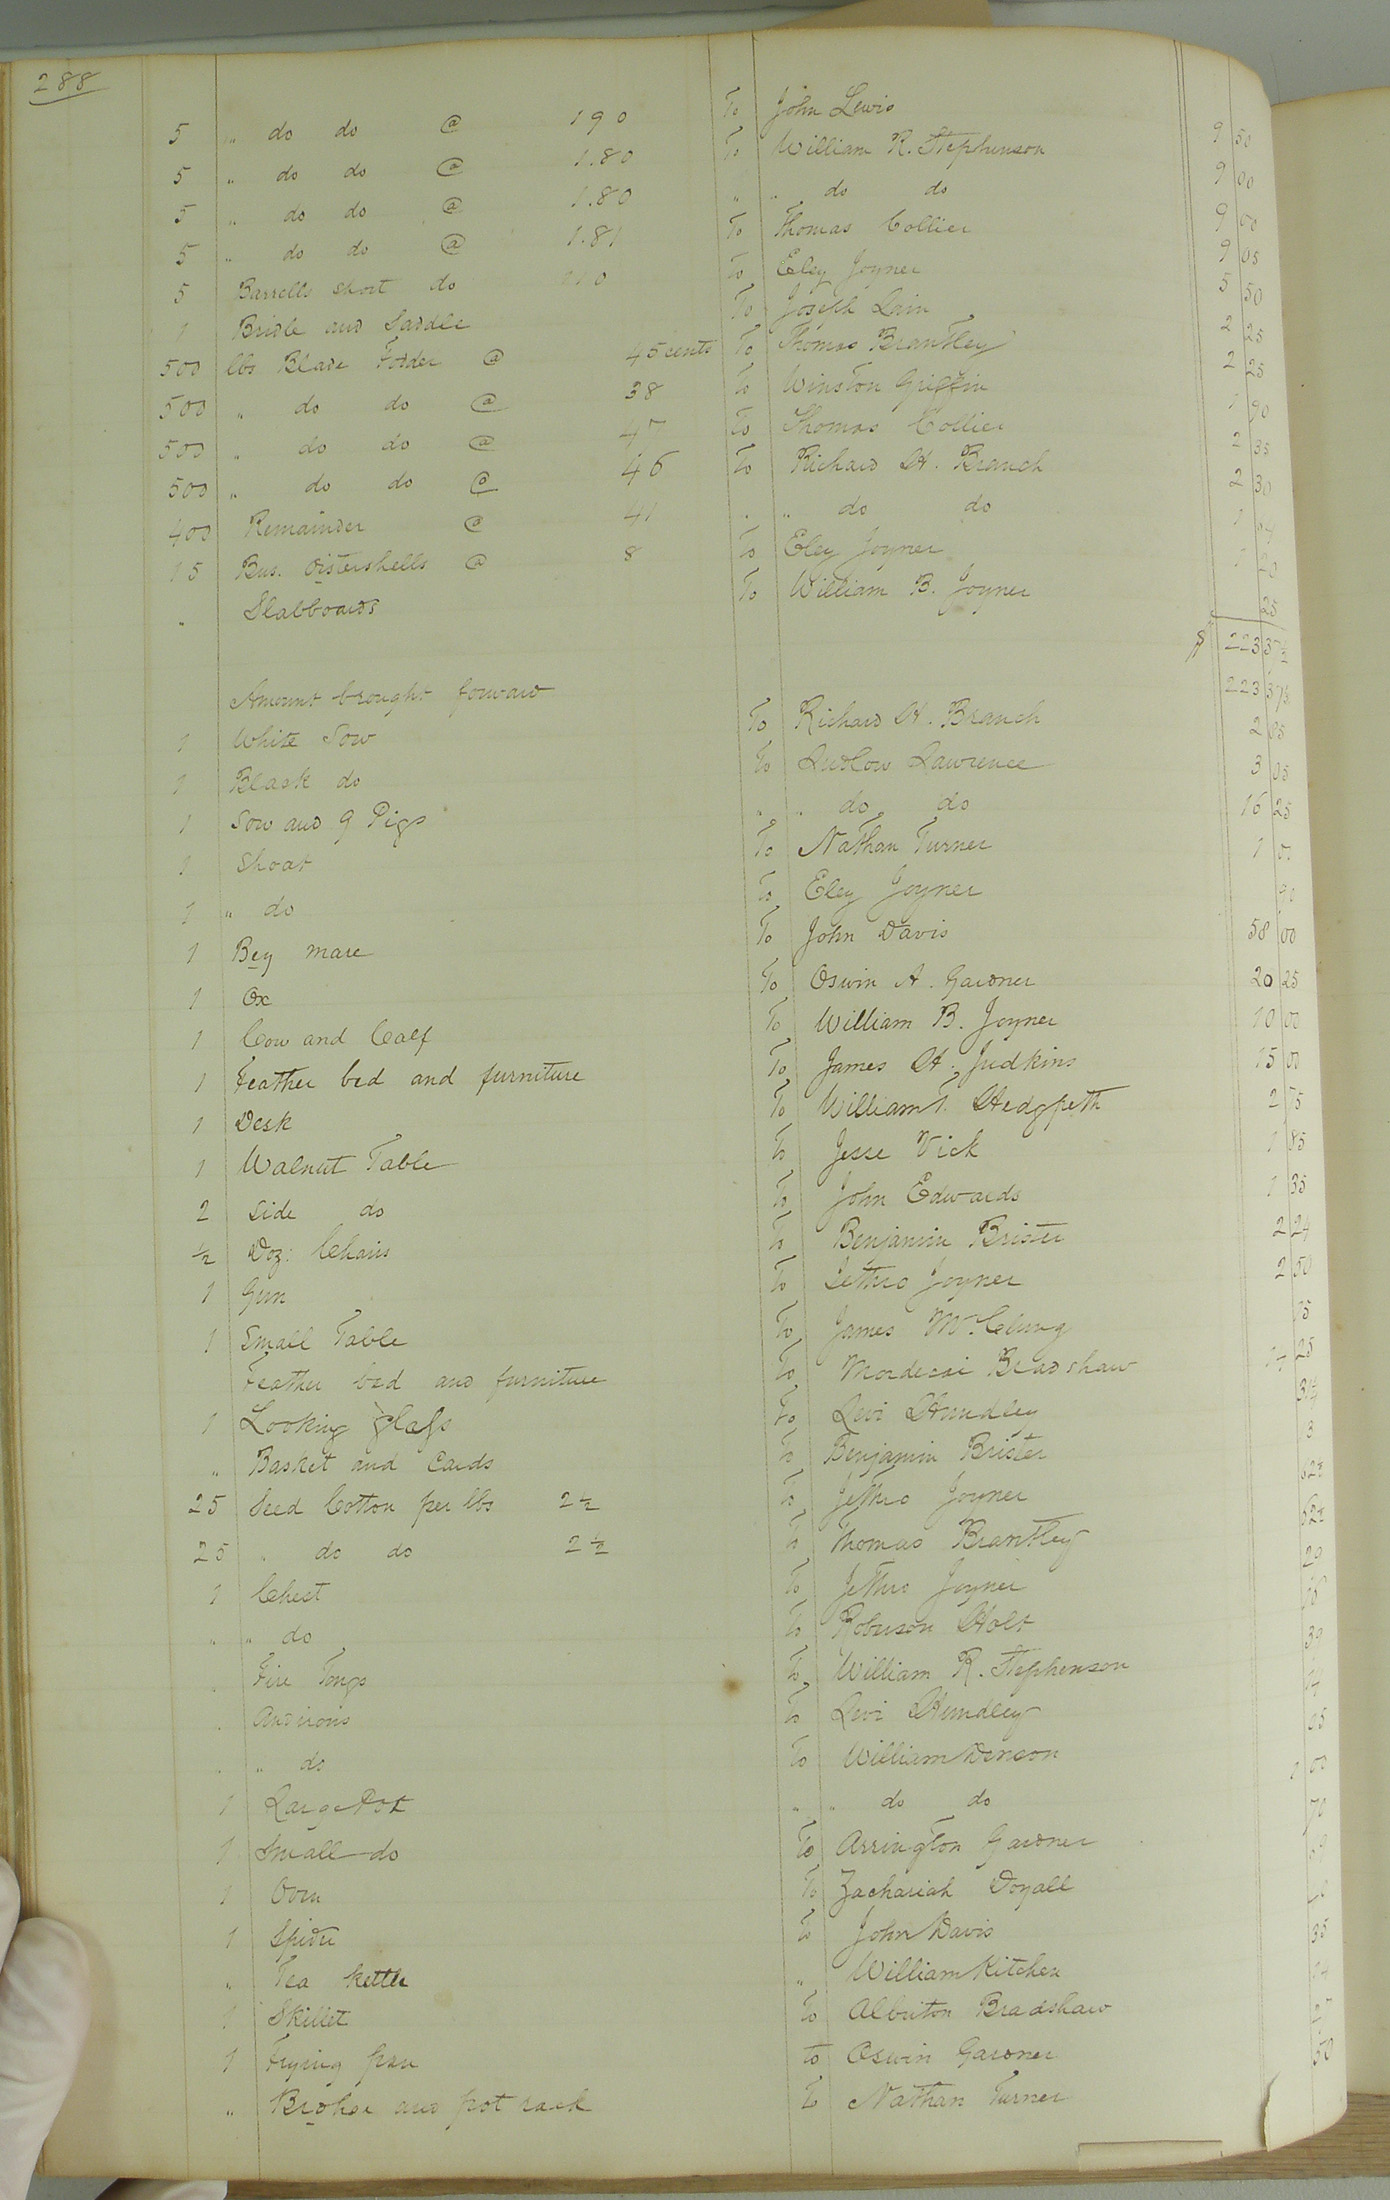 288
5 „ do do @ 190 To John Lewis 9 50
5 „ do do @ 1.80 To William R. Stephenson 9 00
5 „ do do @ 1.80 „ „ do do 9 00
5 „ do do @ 1.81 To Thomas Collier 9 05
5 Barrells short do 110 To Eley Joyner 5 50
1 Bridle and Saddle To Joseph Lain 2 25
500 lbs Blade Fodder @ 45 cents To Thomas Brantley 2 25
500 „ do do @ 38 To Winston Griffin 1 90
500 „ do do @ 47 To Thomas Collier 2 35
500 „ do do @ 46 To Richard H. Branch 2 30
400 Remainder @ 41 „ „ do do 1 64
15 Bus. Oistershells @ 8 To Eley Joyner 1 20
„ Slabboards To William B. Joyner 25
$ 223 37½
Amount brought forward 223 37½
1 White Sow To Richard H. Branch 2 85
1 Black do To Ludlow Lawrence 3 05
1 Sow and 9 Pigs „ „ do do 16 25
1 Shoat To Nathan Turner 1 00
1 „ do To Eley Joyner 90
1 Bey mare To John Davis 58 00
1 Ox To Oswin A. Gardner 20 25
1 Cow and Calf To William B. Joyner 10 00
1 Feather bed and furniture To James H. Judkins 15 00
1 Desk To William T. Hedgpeth 2 75
1 Walnut Table To Jesse Vick 1 85
2 Side do To John Edwards 1 35
½ Doz: Chairs To Benjamin Brister 2 24
1 Gun To Jethro Joyner 2 50
1 Small Table To James McClung
Feather bed and furniture To Mordecai Bradshaw 25
1 Looking glass To Levi Hundley 31¼
„ Basket and Cards To Benjamin Brister 3
25 Seed Cotton per lbs 2½ To Jethro Joyner 62½
25 „ do do 2½ To Thomas Brantley 62½
1 Chest To Jethro Joyner 20
„ „ do To Robinson Holt
„ Fire Tongs To William R. Stephenson 30
„ Andirons To Levi Hundley
„ „ do To William Denson
1 Large Pot „ „ do do 1 00
1 Small do To Arrington Gardner 70
1 Oven To Zachariah Doyall
1 Spider To John Davis
„ Tea kettle „ William Kitchen 35
1 Skillet To Albriton Bradshaw
1 Frying pan To Oswin Gardner
„ Broken and pot rack To Nathan Turner 50